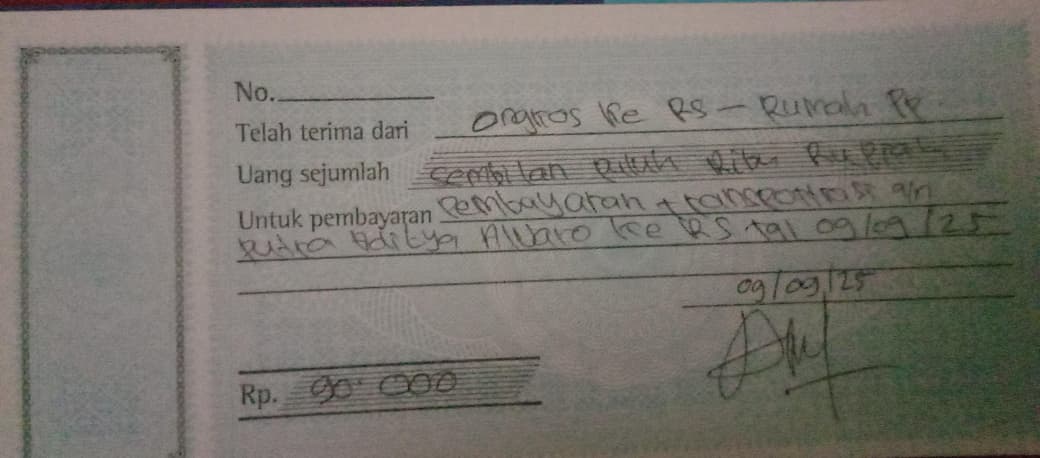 No.
Telah terima dari Ongkos ke RS - Rumah PP.
Uang sejumlah sembilan puluh Ribu Rupiah
Untuk pembayaran Pembayaran transportasi a/n
Putra Aditya Alvaro ke RS tgl 09/09/25
09/09/25
Rp. 90.000